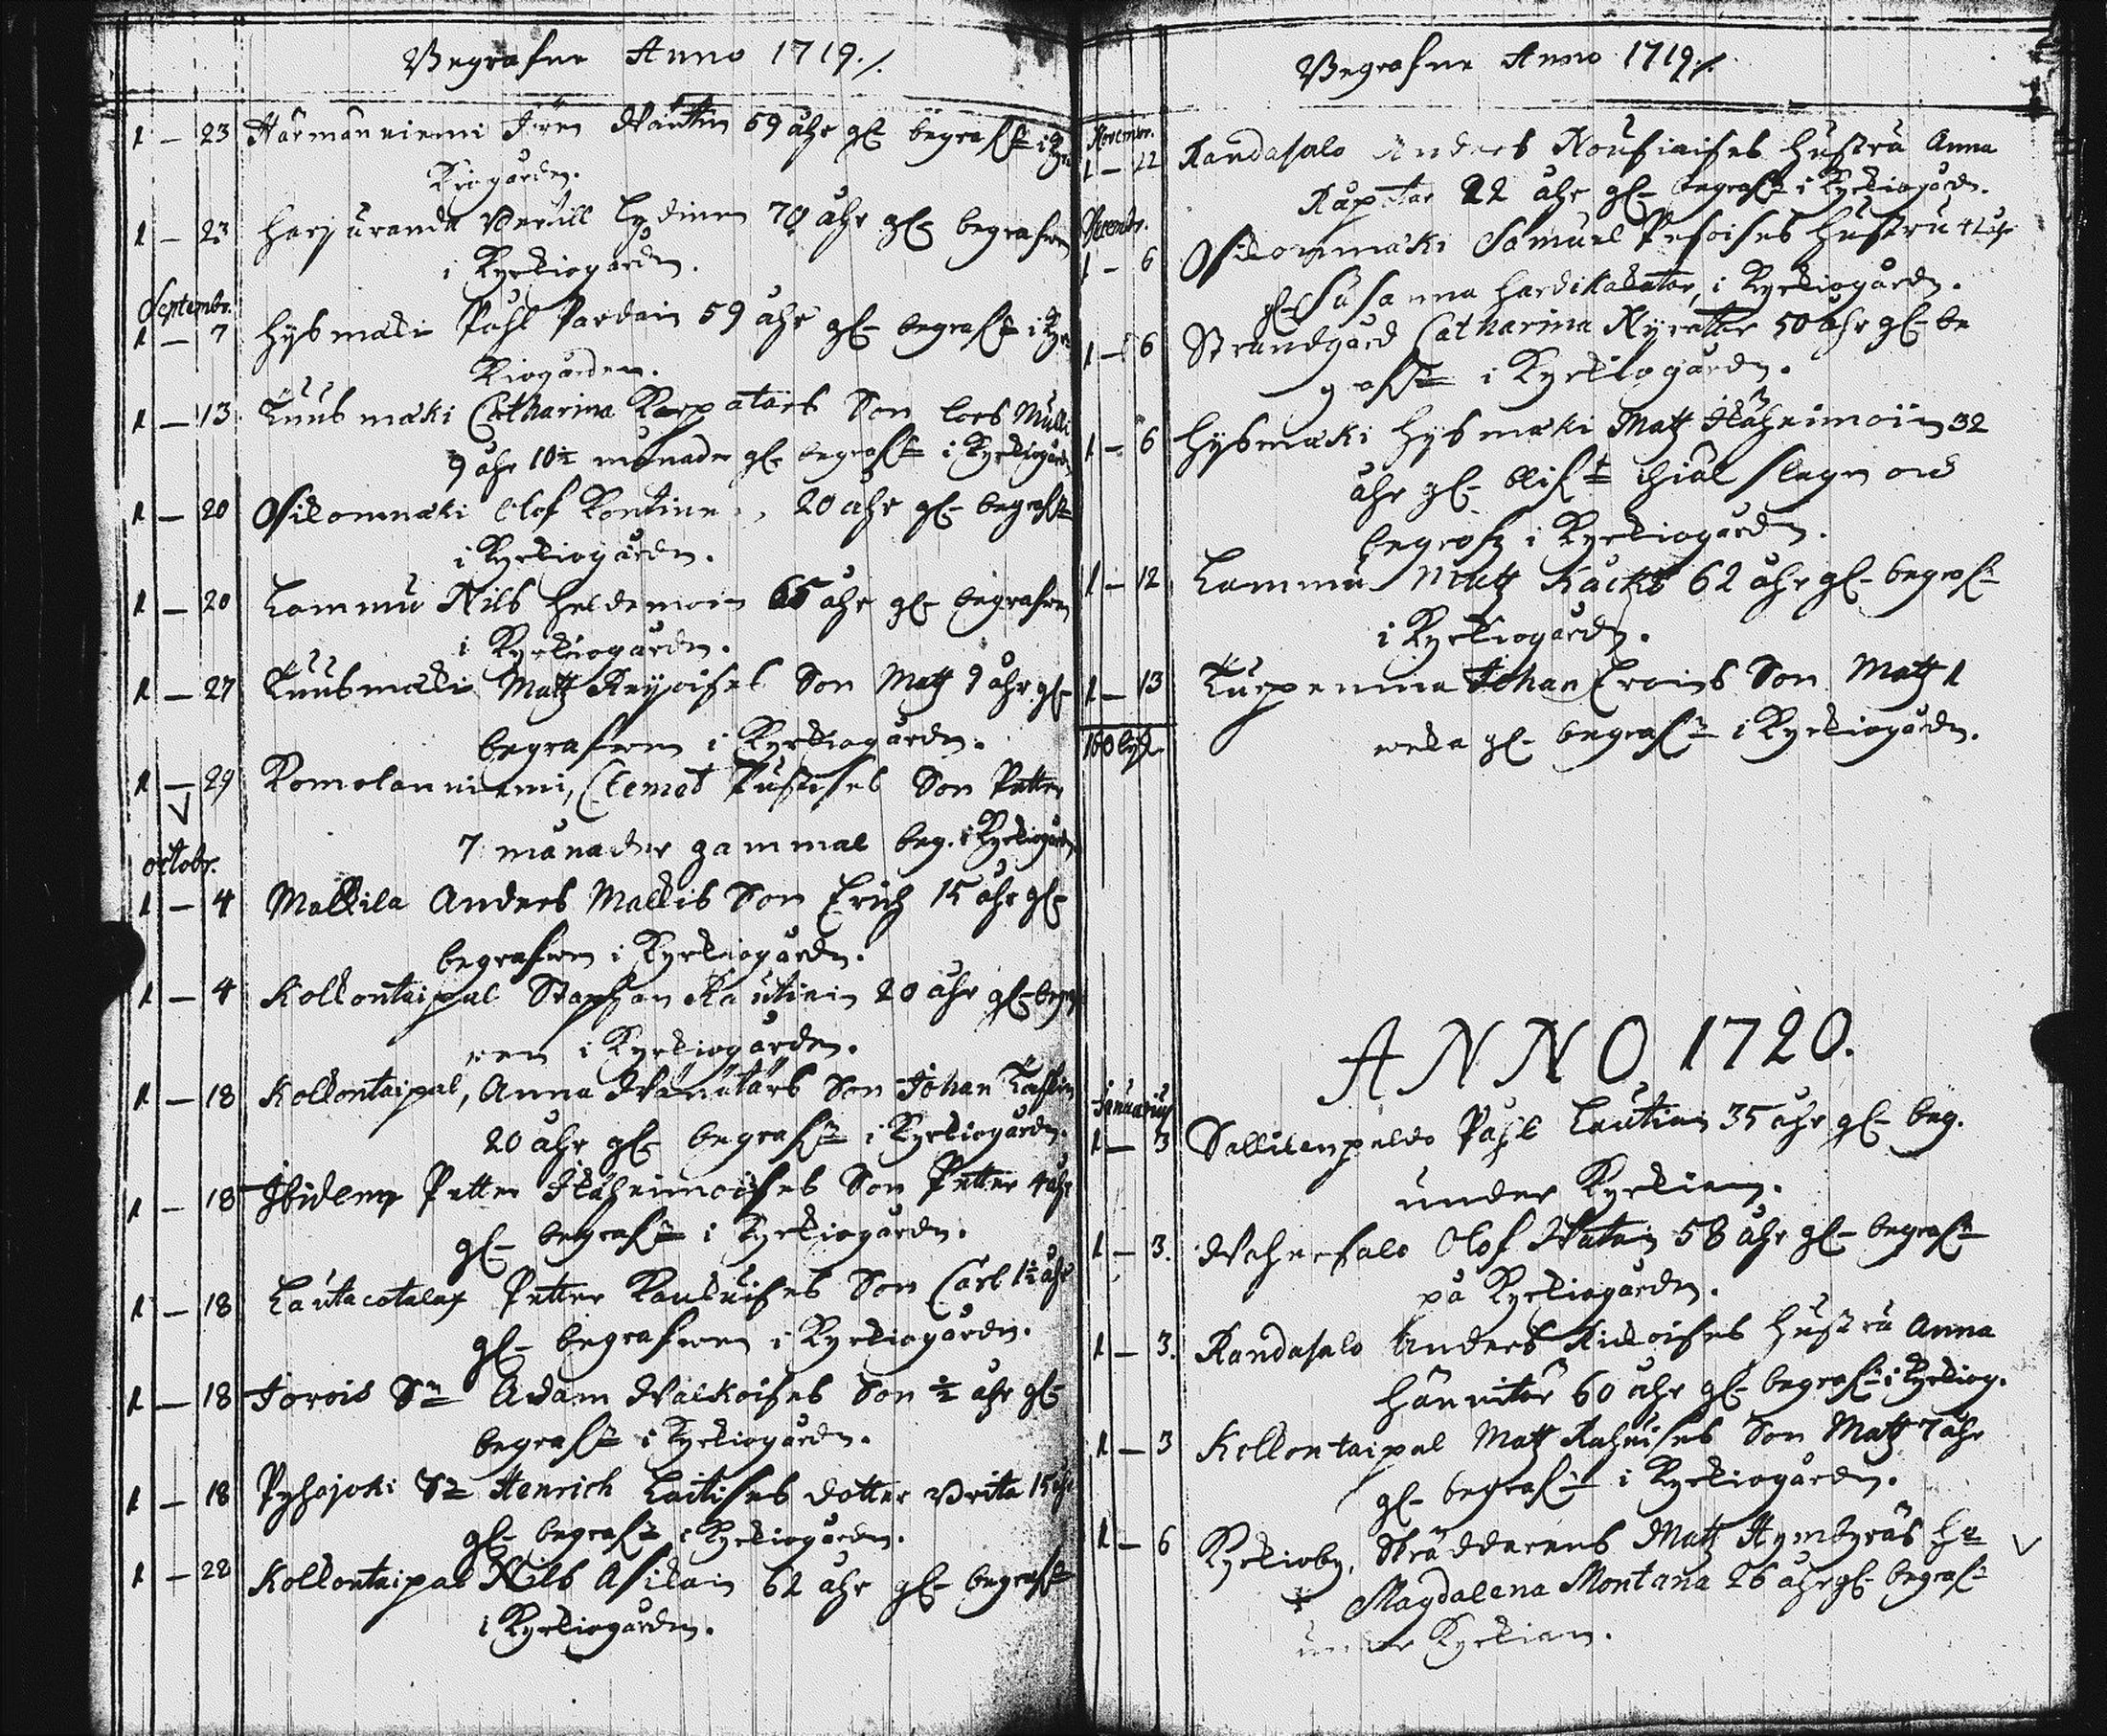 Begrafne Anno 1719./.
1 — 23 Härmänniemi Jören 59 åhr gl begrafn i Kyr
kiogården.
1 — 23 Harjuranda Bertill Lydinen 70 åhr gl begrafven
i Kyrkiogården.
Septembr.
1 — 7 Hysmäki Påhl Pardain 59 åhr gl begrafn i Kyr
kiogården.
1 — 13 Kuusmäki Catharina Karpatars Son Lars Mulli
9 åhr 10½ månader gl begrafn i Kyrkiogården
1 — 20 Osikonmäki Olof Kontinen, 20 åhr gl begrafn
i Kyrkiogården.
1 — 20 Lammu Nils Heldemoin 65 åhr gl begrafven
i Kyrkiogården.
1 — 27 Kuusmäki Matz Reijoises Son Matz 9 åhr gl
begrafven i Kyrkiogården.
1 — 29 Komolanniemi, Clemet Pustises Son Petter
7 månader gammal beg. i Kyrkiogården
octobr.
1 — 4 Malkila Anders Malkis Son Erich 15 åhr gl
begrafven i Kyrkiogården.
1 — 4 Kolkontaipal Staphan Rautiain 20 åhr gl begraf
ven i Kyrkiogården.
1 — 18 Kolkontaipal, Anna Son Johan
20 åhr gl begrafn i Kyrkiogården.
1 — 18 Ibidem Petter Ikäheimoises Son Petter 4 åhr
gl begrafn i Kyrkiogården.
1 — 18 Lautacotalax Petter Son Carl 1½ åhr
gl begrafven i Kyrkiogården.
1 — 18 Jorois Sn Adam Walkoises Son ½ åhr gl
begrafn i Kyrkiogården.
1 — 18 Pyhäjoki Sn Henrich Laitises dotter Brita 15 åhr
gl begrafn i Kyrkiogården.
1 — 22 Kolkontaipal Nils Asikain 62 åhr gl begrafn
i Kyrkiogården.
Begrafne Anno 1719./.
Novembr.
1 — 22 Randasalo Anders Nousiaises hustru Anna
22 åhr gl begrafn i Kyrkiogården.
Decembr.
1 — 6 Osikonmäki Samuel Pesoises hustru 42 åhr
gl Susanna Hardikakatar, i Kyrkiogården.
1 — 6 Strandgård Catharina 50 åhr gl be
grafn i Kyrkiogården.
1 — 6 Hysmäki Hysmäki Matz Ikäheimoin 32
åhr gl blifn ihiäl slagn och
begrafn i Kyrkiogården.
1 — 12 Lammu Matz Käckö 62 åhr gl begrafn
i Kyrkiogården.
1 — 13 Johan Eroins Son Matz 1
weka gl begrafn i Kyrkiogården.
100 lijk.
ANNO 1720.
Januarius
1 — 3 Sallilanpeldo Påhl Lautiain 35 åhr gl beg.
under Kyrkian.
1 — 3. Wehersalo Olof Watain 58 åhr gl begrafn
på Kyrkiogården.
1 — 3. Randasalo Anders Kukoises hustru Anna
60 åhr gl begrafn i Kyrkiog.
1 — 3 Kolkontaipal Matz Son Matz 7 åhr
gl begrafn i Kyrkiogården.
1 — 6 Kyrkioby, Skräddarens Matz hu
Magdalena Montana 26 åhr gl begrafn
under Kyrkian.